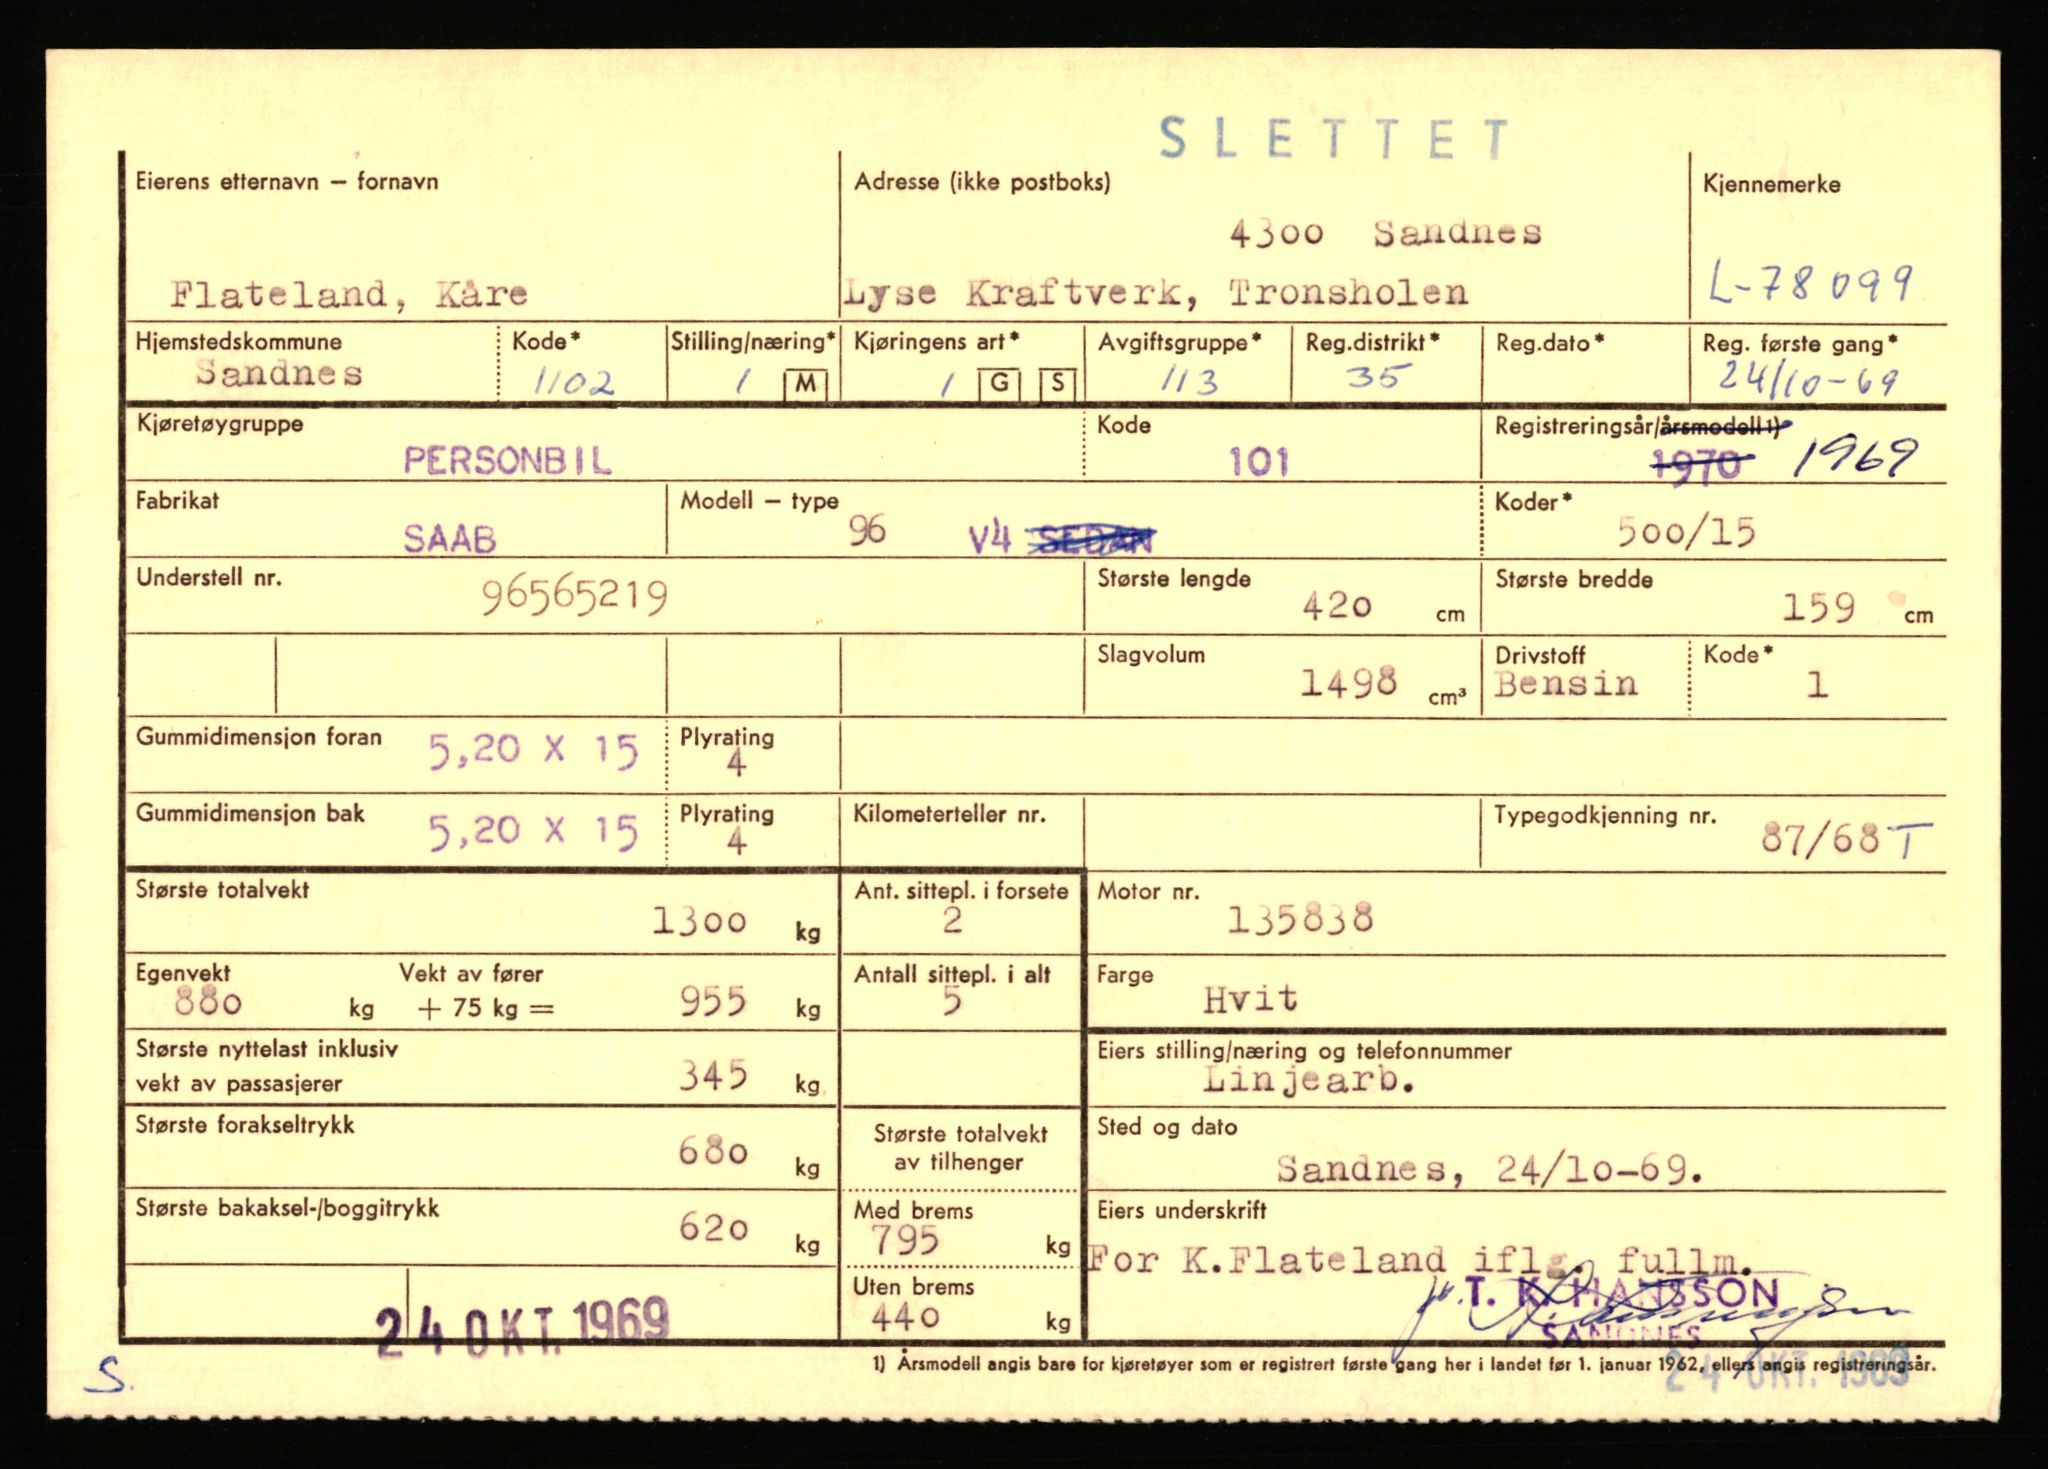 SLETTET
Eierens etternavn – fornavn
Adresse (ikke postboks)
Kjennemerke
4300 Sandnes
Flateland, Kåre
Lyse Kraftverk, Tronsholen
L-78099
Hjemstedskommune
Kode*
Stilling/næring*
Kjøringens art*
Avgiftsgruppe*
Reg.distrikt*
Reg.dato*
Reg. første gang*
Sandnes
1102
1 M
1 G S
113
35
24/10-69
Kjøretøygruppe
Kode
Registreringsår/årsmodell 1)
PERSONBIL
101
1970 1969
Fabrikat
Modell – type
Koder*
SAAB
96 V4 SEDAN
500/15
Understell nr.
96565219
Største lengde
420 cm
Største bredde
159 cm
Slagvolum
1498 cm³
Drivstoff
Bensin
Kode*
1
Gummidimensjon foran 5,20 X 15
Plyrating
4
Gummidimensjon bak 5,20 X 15
Plyrating
4
Kilometerteller nr.
Typegodkjenning nr.
87/68 T
Største totalvekt
1300 kg
Ant. sittepl. i forsete
2
Motor nr.
135838
Egenvekt
880 kg
Vekt av fører
+ 75 kg = 955 kg
Antall sittepl. i alt
5
Farge
Hvit
Største nyttelast inklusiv
vekt av passasjerer
345 kg
Eiers stilling/næring og telefonnummer
Linjearb.
Største forakseltrykk
680 kg
Største totalvekt
av tilhenger
Sted og dato
Sandnes, 24/10-69.
Største bakaksel-/boggitrykk
620 kg
Med brems
795 kg
Eiers underskrift
For K.Flateland iflg. fullm.
T. K. HANSSON
SANDNES
Uten brems
440 kg
24 OKT. 1969
1) Årsmodell angis bare for kjøretøyer som er registrert første gang her i landet før 1. januar 1962, ellers angis registreringsår.
S.
24 OKT. 1969